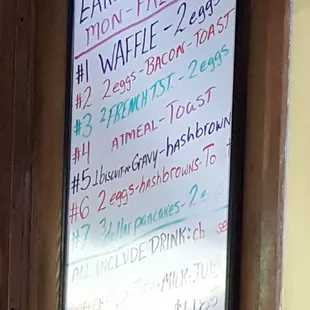 MON-FRI
#1 WAFFLE - 2eggs
#2 2eggs-BACON-TOAST
#3 2FRENCH TST. - 2eggs
#4 ATMEAL-TOAST
#5 1biscuit GRAVY-hashbrown
#6 2 eggs-hashbrowns-To
#7 3dollar pancakes-2 e
ALL INCLUDE DRINK: ch se
MILK-JUI